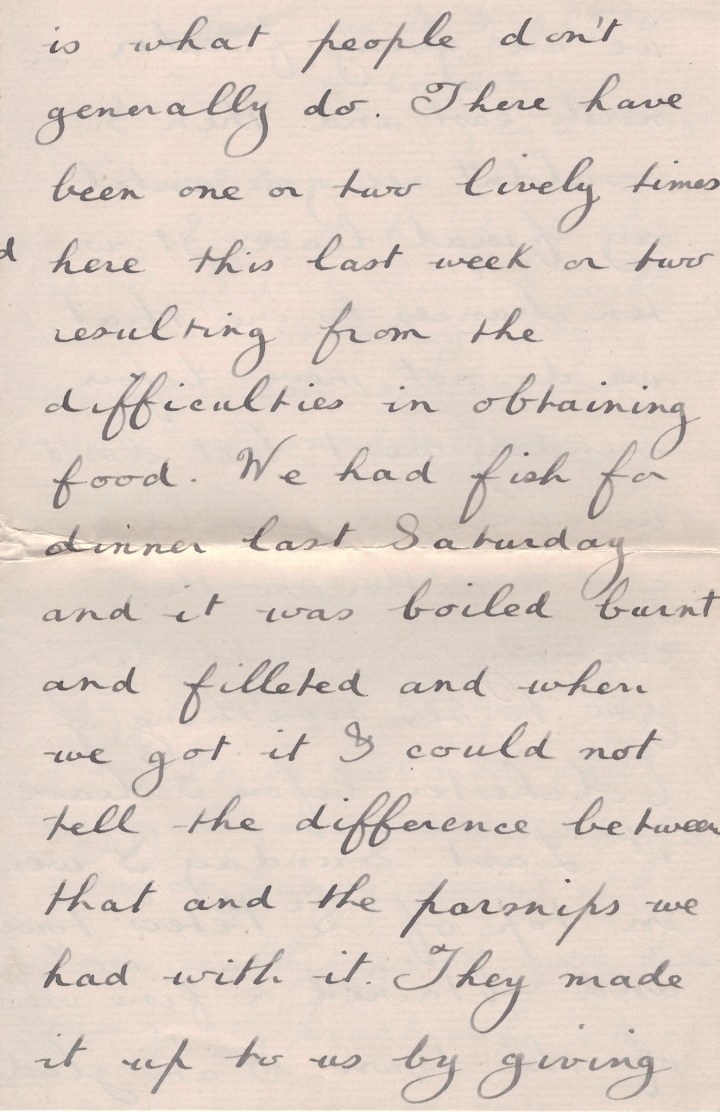 is what people don't
generally do. There have
been one or two lively times
here this last week or two
resulting from the
difficulties in obtaining
food. We had fish for
dinner last Saturday
and it was boiled burnt
and filleted and when
we got it I could not
tell the difference between
that and the parsnips we
had with it. They made
it up to us by giving